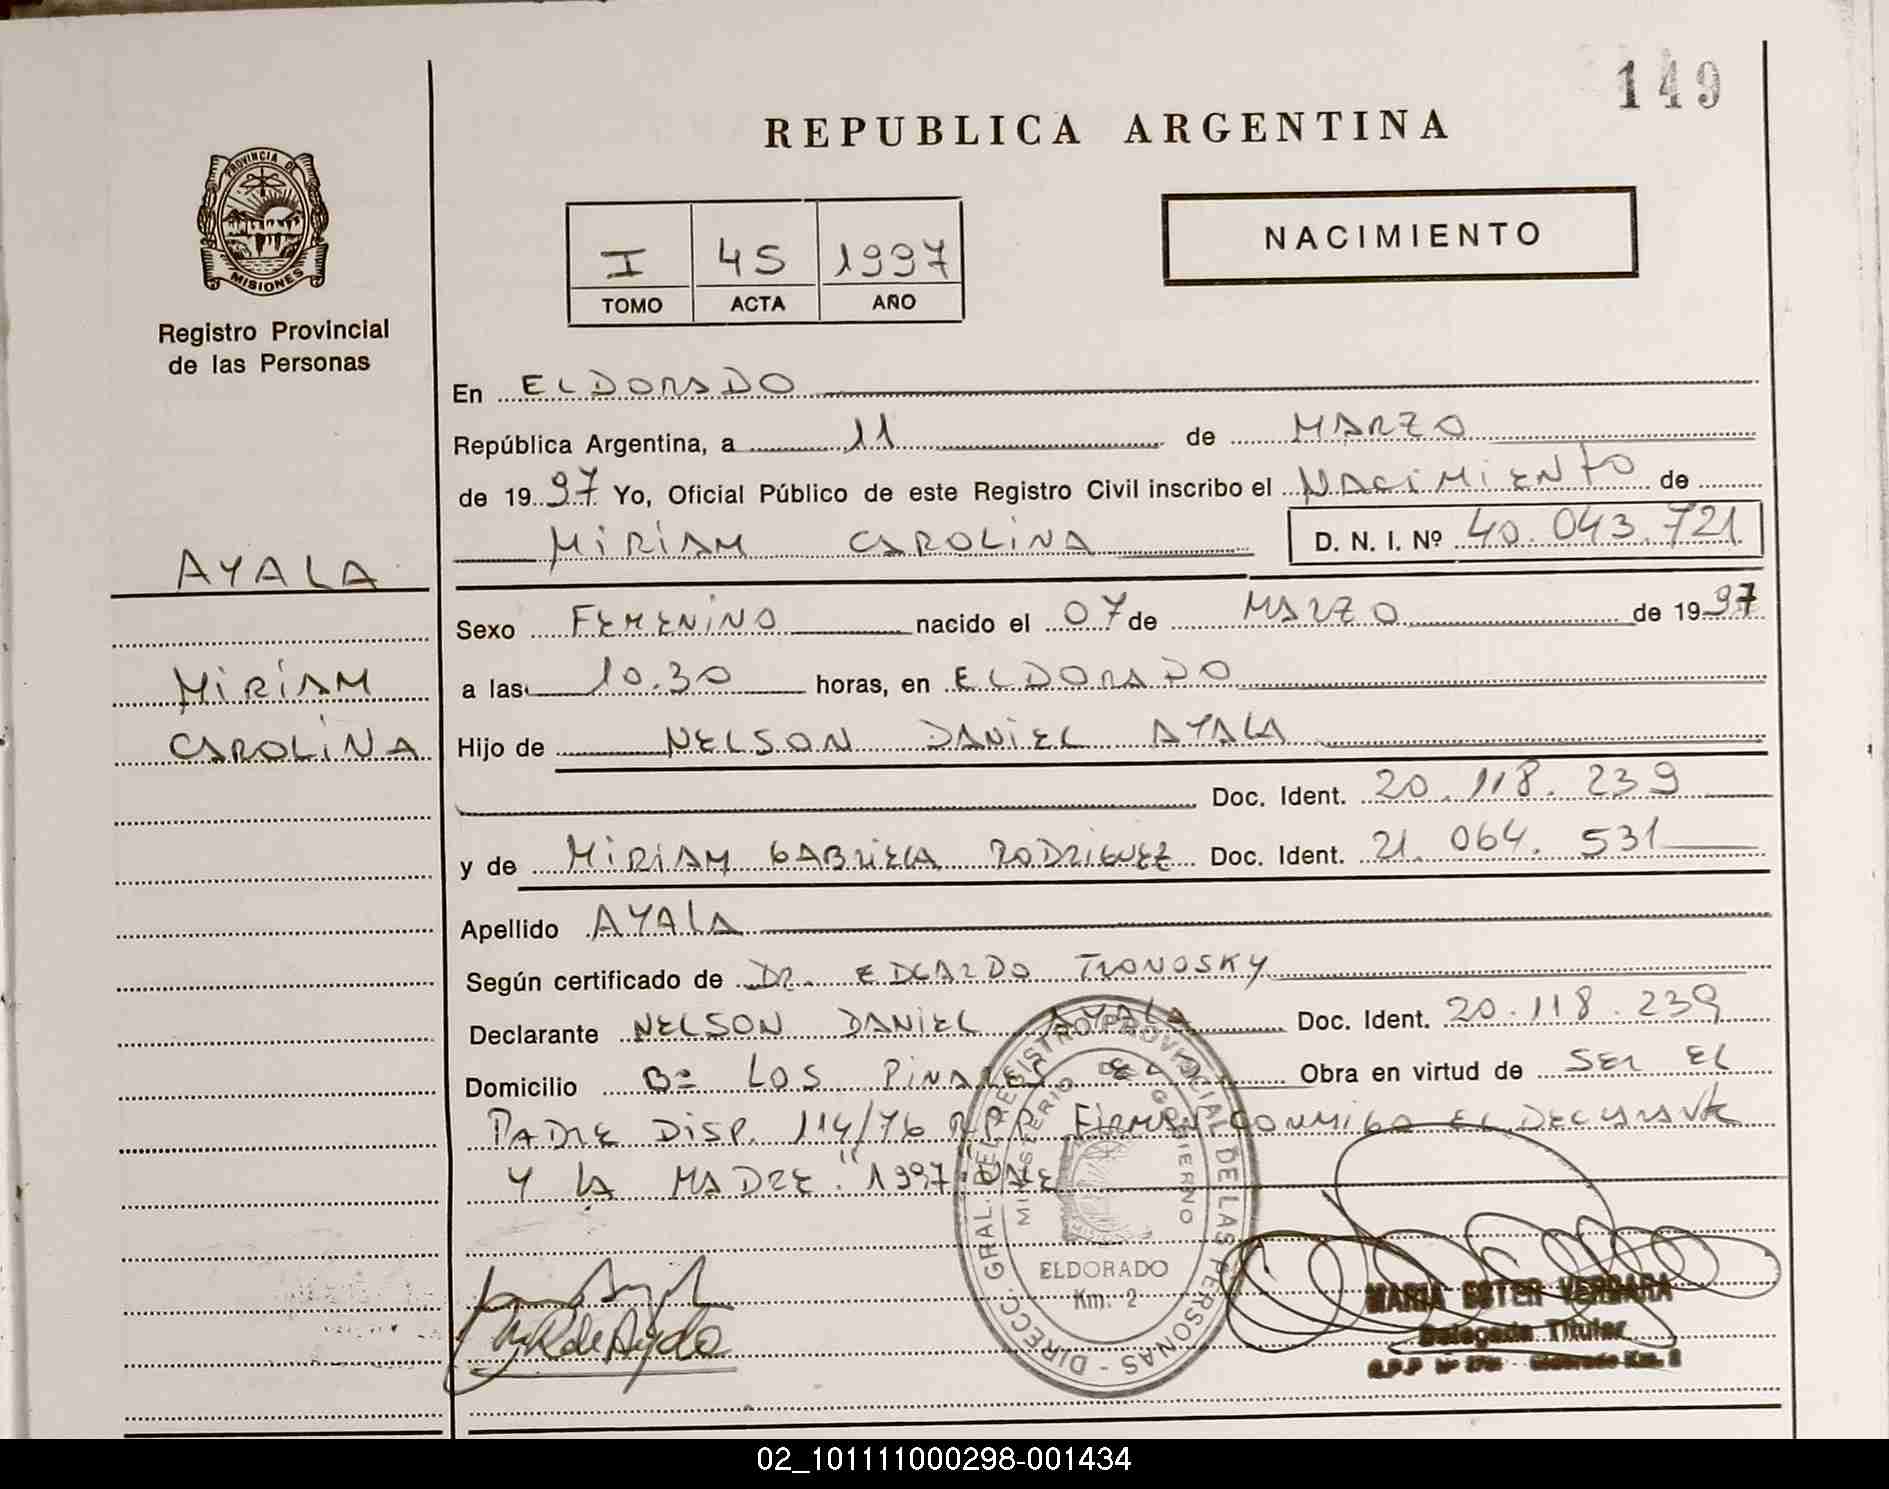 149
REPUBLICA ARGENTINA
PROVINCIA DE
MISIONES
Registro Provincial
de las Personas
I 45 1997
TOMO ACTA AÑO
NACIMIENTO
En ELDORADO
República Argentina, a 11 de MARZO
de 1997 Yo, Oficial Público de este Registro Civil inscribo el NACIMIENTO de
MIRIAM CAROLINA D. N. I. Nº 40.043.721
AYALA
MIRIAM
CAROLINA
Sexo FEMENINO nacido el 07 de MARZO de 1997
a las 10.30 horas, en ELDORADO
Hijo de NELSON DANIEL AYALA
Doc. Ident. 20.118.239
y de MIRIAM GABRIELA RODRIGUEZ Doc. Ident. 21.064.531
Apellido AYALA
Según certificado de DR. EDGARDO TRONOSKY
Declarante NELSON DANIEL AYALA Doc. Ident. 20.118.239
Domicilio Bº LOS PINARES Obra en virtud de SER EL
PADRE DISP. 114/76 R.P.P. FIRMAN CONMIGO EL DECLARANTE
Y LA MADRE. "1997" VALE
DIRECC. GRAL. DEL REGISTRO PROVINCIAL DE LAS PERSONAS
MINISTERIO DE GOBIERNO
ELDORADO
Km. 2
R de Ayala
MARIA ESTER VERGARA
Delegada Titular
R.P.P Nº Eldorado Km. 2
02_101111000298-001434